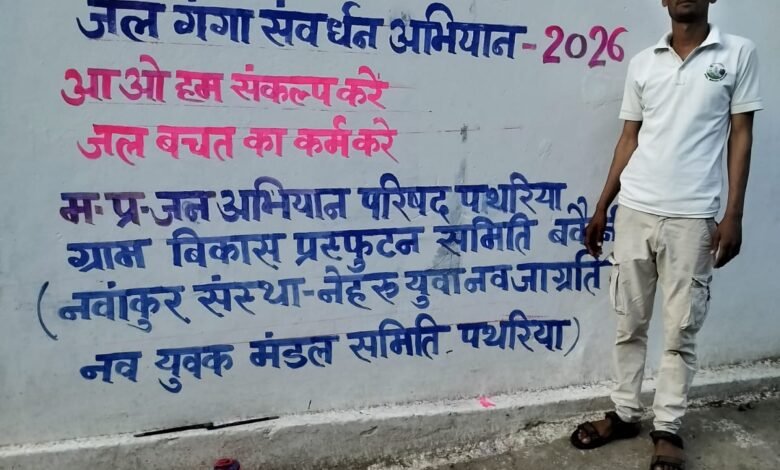 जल गंगा संवर्धन अभियान-2026
आओ हम संकल्प करे
जल बचत का कर्म करे
म-प्र-जन अभियान परिषद पथरिया
ग्राम बिकास प्रस्फुटन समिति
(नवांकुर संस्था-नेहरू युवा नव जाग्रति
नव युवक मंडल समिति पथरिया)